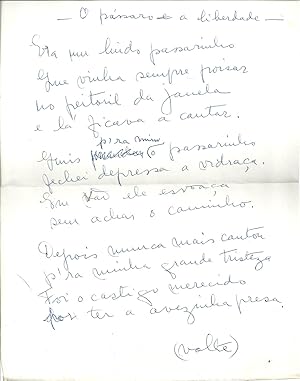 — O pássaro e a liberdade —
Era um lindo passarinho
Que vinha sempre poisar
no peitoril da janela
e lá ficava a cantar.
Quis p'ra mim o passarinho
fechei depressa a vidraça.
Em vão ele esvoaça
sem achar o caminho.
Depois nunca mais cantou
p'ra minha grande tristeza
Foi o castigo merecido
por ter a avezinha presa
(volte)